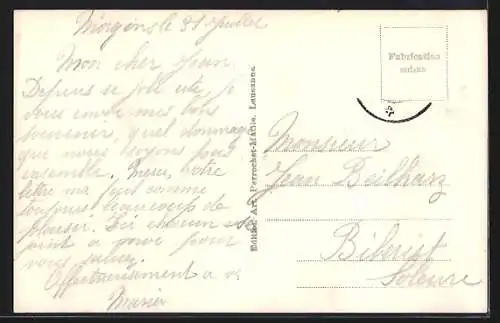 Morgins le 31 Juillet
Mon cher Jean.
Depuis ce joli site, je
vous envoi mes bons
souvenirs, quel dommage
que nous soyons pas
ensemble. Merci, votre
lettre ma fait comme
toujours beaucoup de
plaisir. Ici chacun se
joint a moi pour
vous saluer.
Affectueusement a v.
Marie
Edition Art. Perrochet-Matile, Lausanne
Fabrication
suisse
Monsieur
Jean Beilharz
Biberist
Soleure